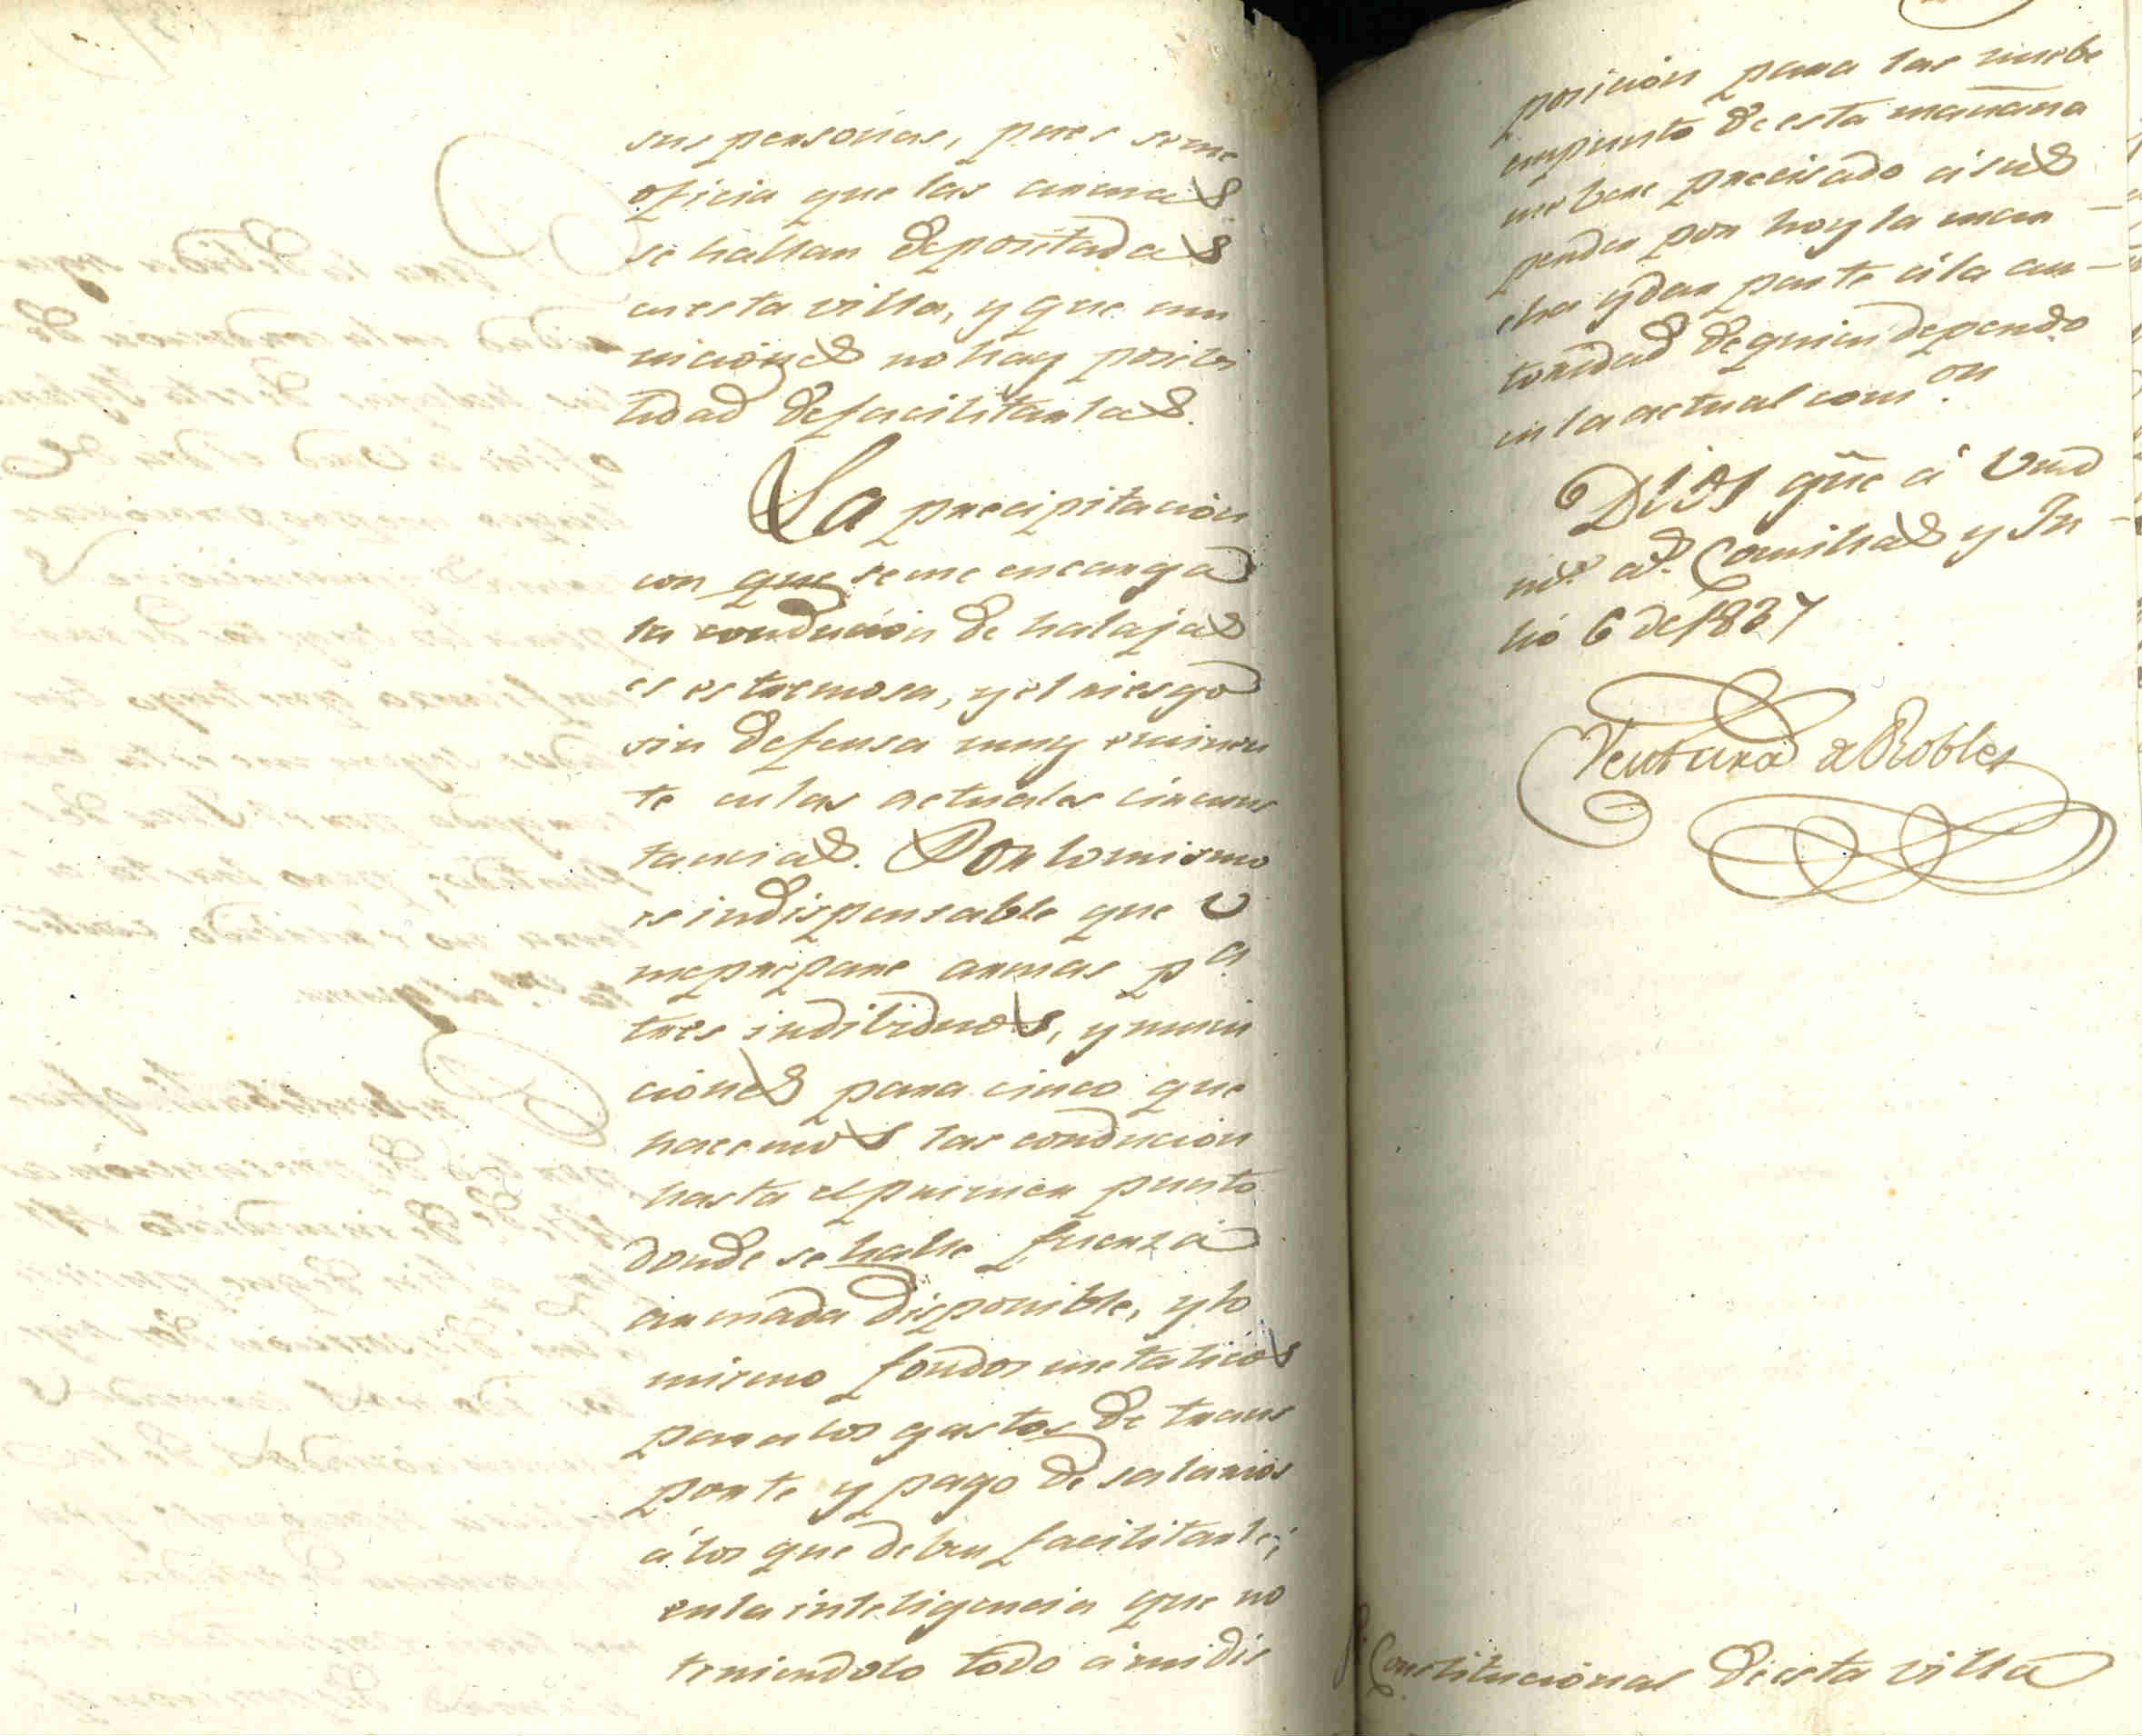 sus personas, pues se me
oficia que las armas
se hallan depositadas
en esta villa, y que mu
niciones no hay posibi
lidad de facilitarlas.
La precipitacion
con que se me encarga
la conducion de halajas
es estremosa, y el riesgo
sin defensa muy eminen
te en las actuales circuns
tancias. Por lo mismo
es indispensable que U
me prepare armas pa.
tres indibiduos, y muni
ciones para cinco que
hacemos las conducion
hasta el primer punto
donde se halle fuerza
armada disponible, y lo
mismo fondos metalicos
para los gastos de trans
porte y pago de salarios
á los que deben facilitarle;
en la inteligencia que no
teniendolo todo á mi dis
posicion para las nuebe
en punto de esta mañana
me bere precisado a sus
pender por hoy la mar
cha y dar parte á la au-
toridad de quien dependo
en la actual comon.
Dios gue á Vmd
ms. as. Comillas y Ju-
lio 6 de 1837
Ventura de Robles
Constitucional de esta villa